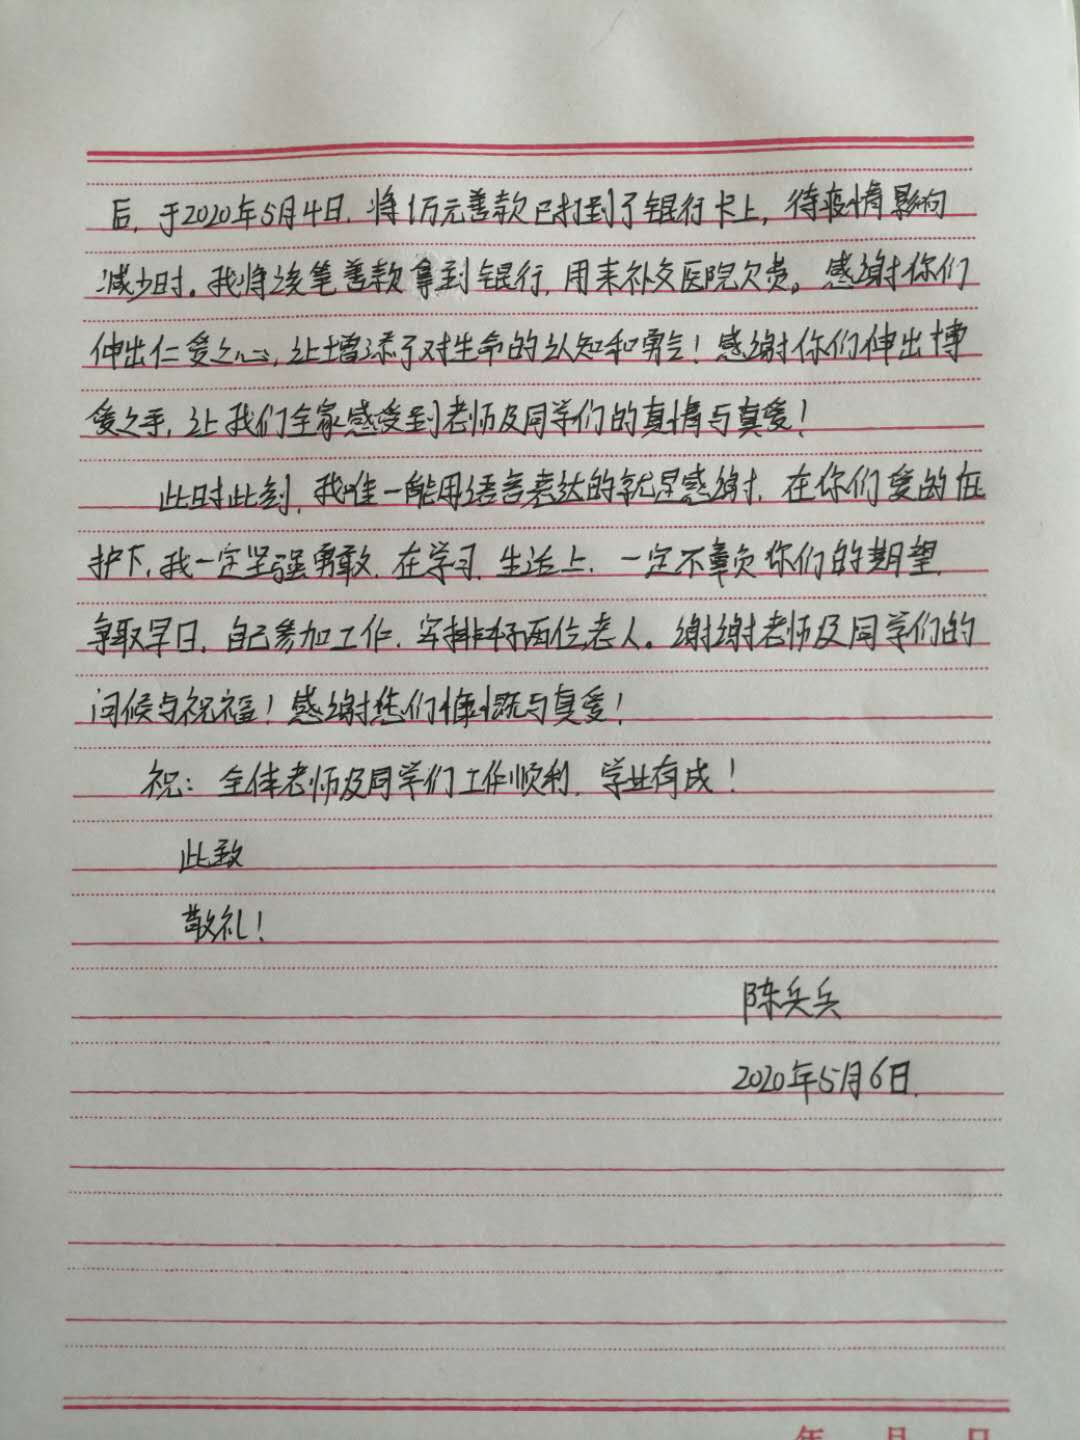 后，于2020年5月4日，将1万元善款已打到了银行卡上，待疫情影响
减少时。我将该笔善款拿到银行，用来补交医院欠费。感谢你们
伸出仁爱之心，让增添了对生命的认知和勇气！感谢你们伸出博
爱之手，让我们全家感受到老师及同学们的真情与真爱！
此时此刻，我唯一能用语言表达的就是感谢，在你们爱的庇
护下，我一定坚强勇敢，在学习、生活上，一定不辜负你们的期望，
争取早日，自己参加工作，安排好两位老人。谢谢老师及同学们的
问候与祝福！感谢您们慷慨与真爱！
祝：全体老师及同学们工作顺利，学业有成！
此致
敬礼！
陈兵兵
2020年5月6日.
年 月 日